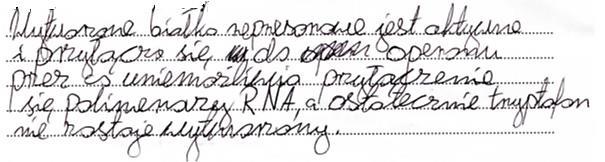 Wytworzone białko represorowe jest aktywne
i przyłącza się do operonu
przez co uniemożliwia przyłączenie
się polimerazy RNA, a ostatecznie tryptofan
nie zostaje wytworzony.